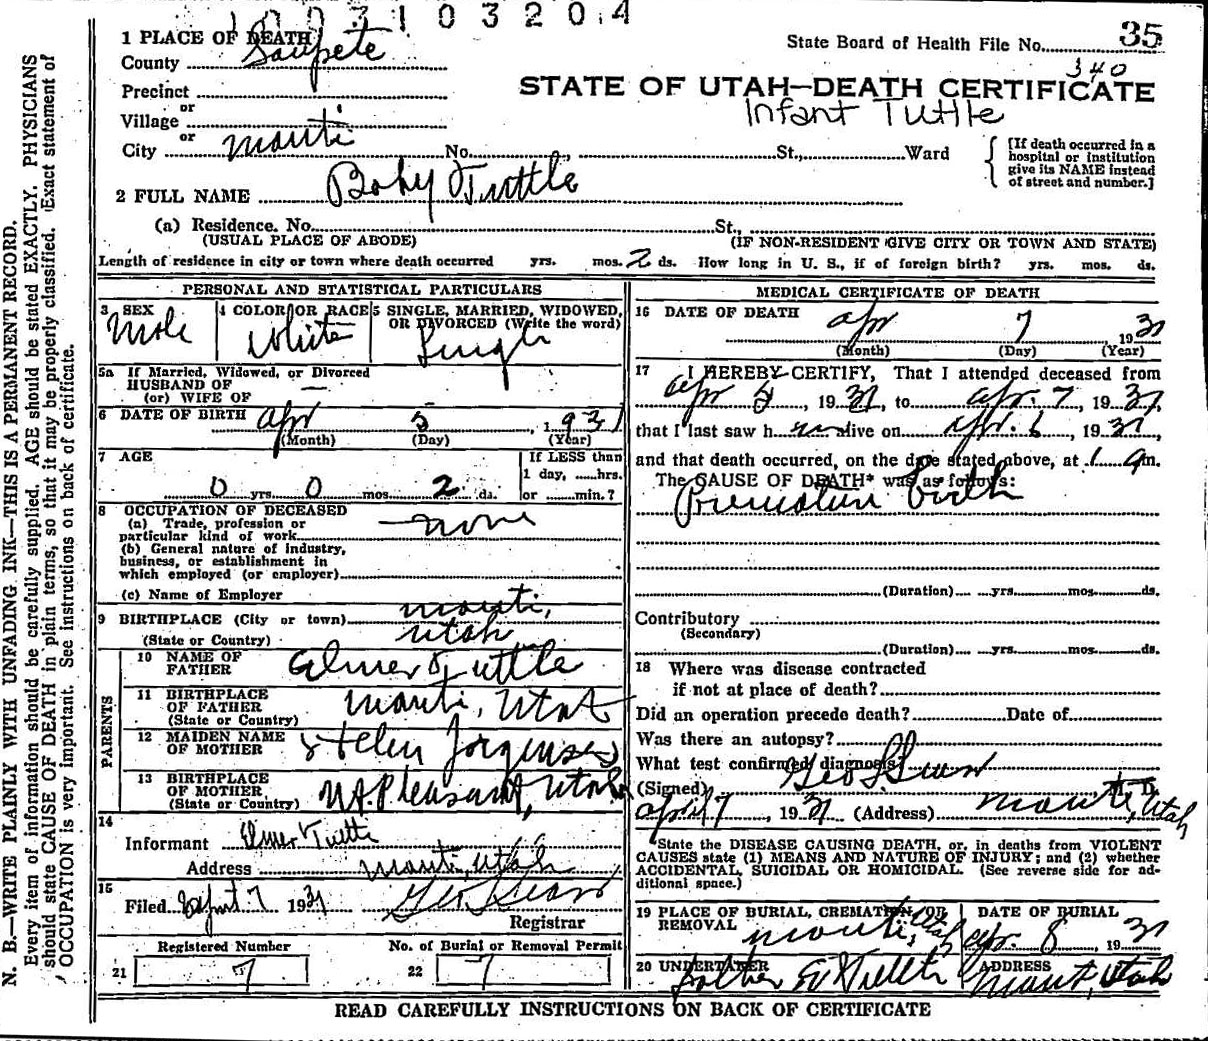 1003103204
35
State Board of Health File No.
340
STATE OF UTAH—DEATH CERTIFICATE
Infant Tuttle
1 PLACE OF DEATH
County Sanpete
Precinct
or
Village
or
City Manti No. St., Ward
[If death occurred in a hospital or institution give its NAME instead of street and number.]
2 FULL NAME Baby Tuttle
(a) Residence. No. St.,
(USUAL PLACE OF ABODE) (IF NON-RESIDENT GIVE CITY OR TOWN AND STATE)
Length of residence in city or town where death occurred yrs. mos. 2 ds. How long in U. S., if of foreign birth? yrs. mos. ds.
PERSONAL AND STATISTICAL PARTICULARS
3 SEX Male
4 COLOR OR RACE White
5 SINGLE, MARRIED, WIDOWED, OR DIVORCED (Write the word) Single
5a If Married, Widowed, or Divorced
HUSBAND OF —
(or) WIFE OF
6 DATE OF BIRTH Apr 5, 1931
(Month) (Day) (Year)
7 AGE
0 yrs. 0 mos. 2 ds.
If LESS than
1 day, hrs.
or min.?
8 OCCUPATION OF DECEASED
(a) Trade, profession or
particular kind of work none
(b) General nature of industry,
business, or establishment in
which employed (or employer)
(c) Name of Employer
9 BIRTHPLACE (City or town) Manti,
(State or Country) Utah
PARENTS
10 NAME OF FATHER Elmer Tuttle
11 BIRTHPLACE OF FATHER (State or Country) Manti, Utah
12 MAIDEN NAME OF MOTHER Helen Jorgensen
13 BIRTHPLACE OF MOTHER (State or Country) Mt. Pleasant, Utah
14
Informant Elmer Tuttle
Address Manti, Utah
15
Filed April 7 1931 Geo
Registrar
Registered Number
21 7
No. of Burial or Removal Permit
22 7
MEDICAL CERTIFICATE OF DEATH
16 DATE OF DEATH Apr 7 1931
(Month) (Day) (Year)
17 I HEREBY CERTIFY, That I attended deceased from
Apr 5, 1931, to Apr. 7, 1931,
that I last saw h alive on Apr. 6, 1931,
and that death occurred, on the date stated above, at 1 am.
The CAUSE OF DEATH* was as follows:
Premature birth
(Duration) yrs. mos. ds.
Contributory
(Secondary)
(Duration) yrs. mos. ds.
18 Where was disease contracted
if not at place of death?
Did an operation precede death? Date of
Was there an autopsy?
What test confirmed diagnosis?
(Signed) Geo M. D.
April 7, 1931 (Address) Manti, Utah
*State the DISEASE CAUSING DEATH, or, in deaths from VIOLENT
CAUSES state (1) MEANS AND NATURE OF INJURY; and (2) whether
ACCIDENTAL, SUICIDAL OR HOMICIDAL. (See reverse side for ad-
ditional space.)
19 PLACE OF BURIAL, CREMATION, OR REMOVAL Manti, Utah
DATE OF BURIAL Apr. 8, 1931
20 UNDERTAKER Father E Tuttle
ADDRESS Manti, Utah
READ CAREFULLY INSTRUCTIONS ON BACK OF CERTIFICATE
N. B.—WRITE PLAINLY WITH UNFADING INK—THIS IS A PERMANENT RECORD.
Every item of information should be carefully supplied. AGE should be stated EXACTLY. PHYSICIANS
should state CAUSE OF DEATH in plain terms, so that it may be properly classified. Exact statement of
OCCUPATION is very important. See instructions on back of certificate.